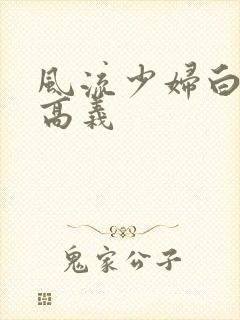 風流少婦白
高義
鬼家公子